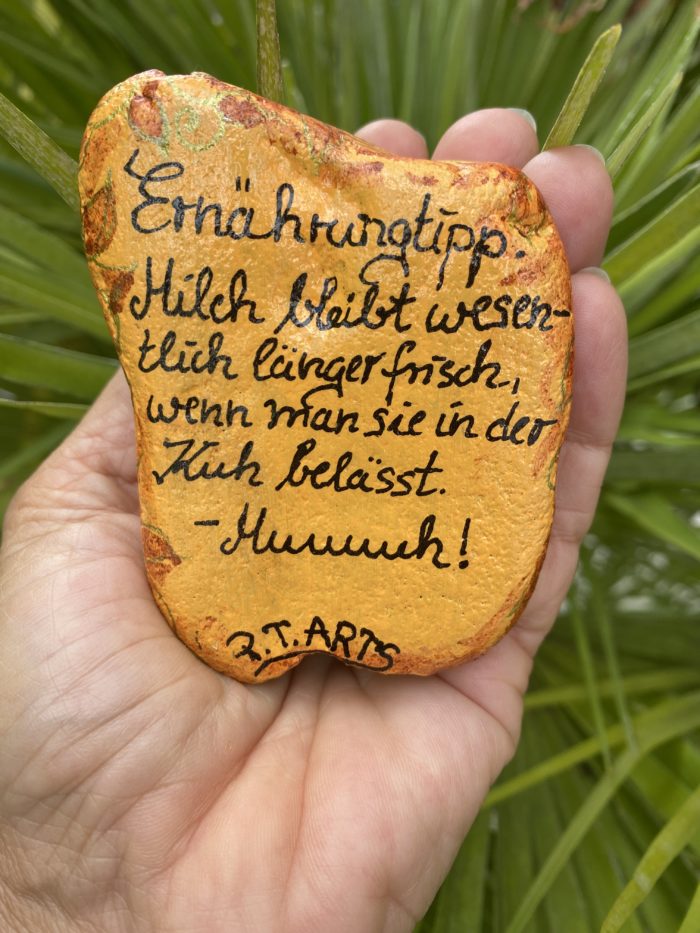 Ernährungtipp.
Milch bleibt wesen-
tlich länger frisch,
wenn man sie in der
Kuh belässt.
-Muuuuh!
Z.T.ARTS